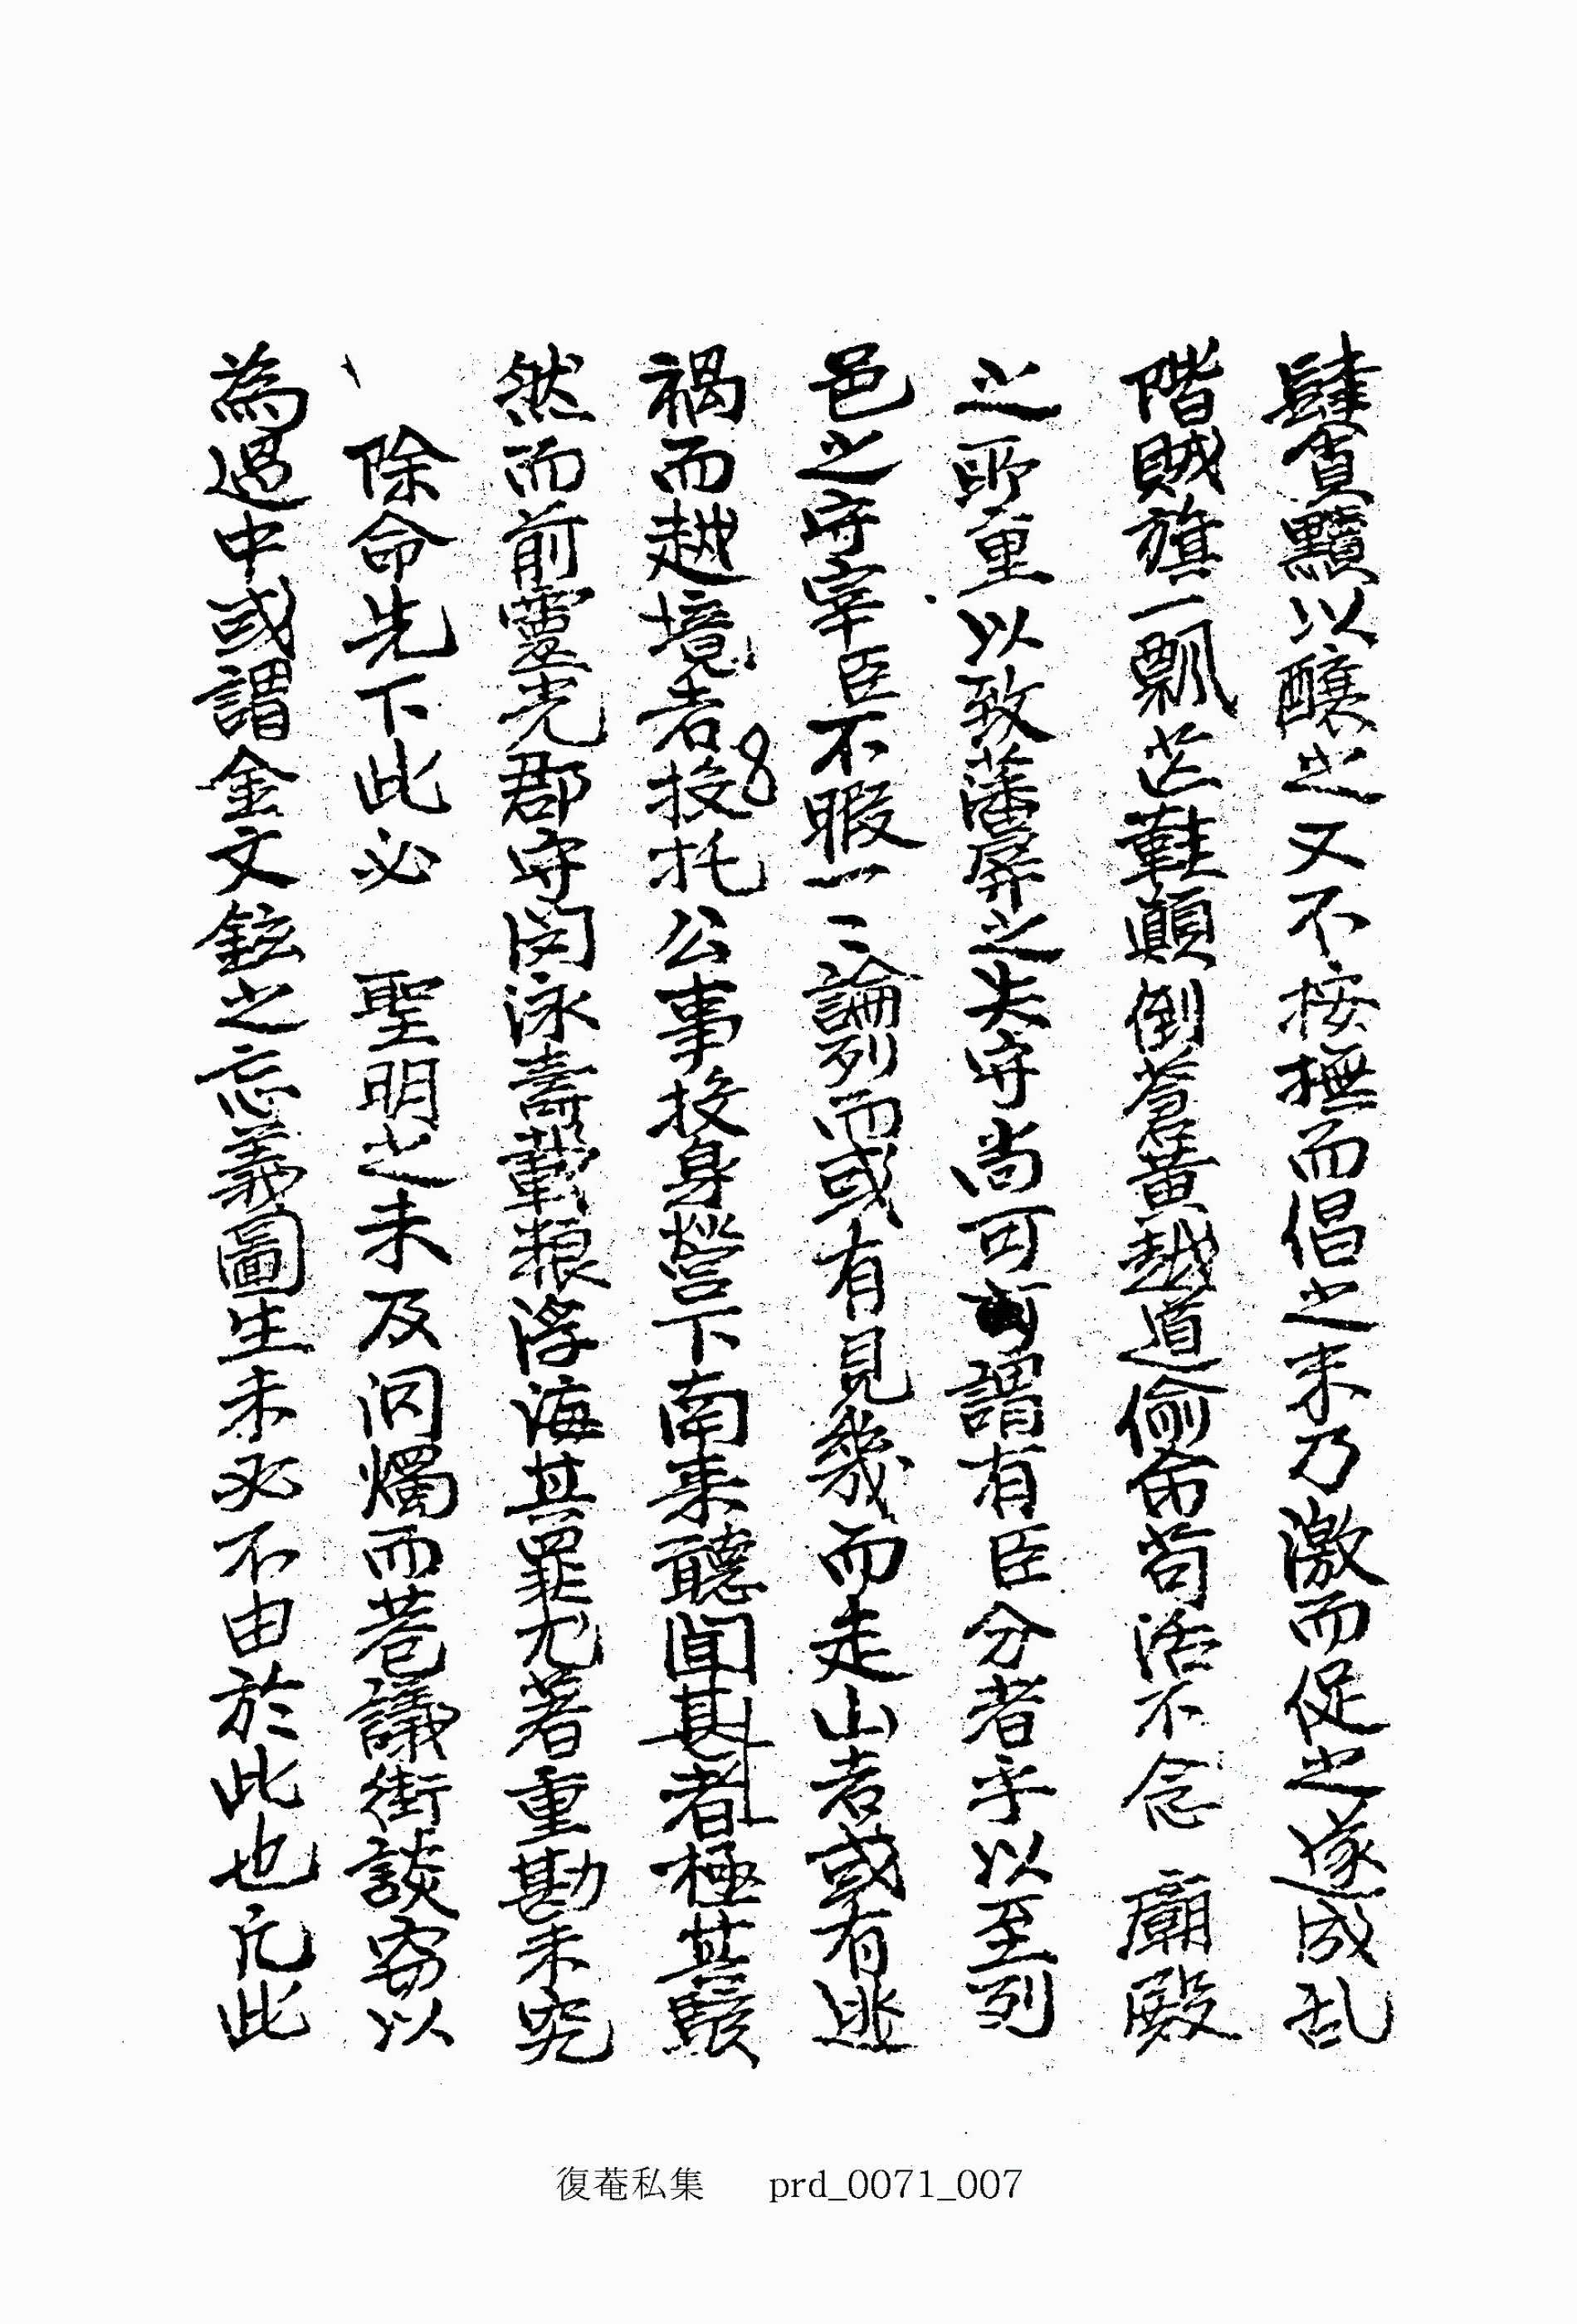 肆貪黷以釀之又不按撫而倡之末乃激而促之遂成乱
階賊旗一飄芒鞋顚倒蒼黃越道偷命苟活不念 廟殿
之所重以致藩屏之失守尚可謂有臣分者乎以至列
邑之守宰臣不暇一二論列而或有見幾而走山者或有逃
禍而越境者投托公事投身營下南来聽聞甚者極其駭
然而前靈光郡守閔泳壽載粮浮海其罪尤著重勘未究
除命先下此必 聖明之未及洞燭而巷議街談窃以
為過中或謂金文鉉之忘義圖生未必不由於此也凡此
復菴私集 prd_0071_007